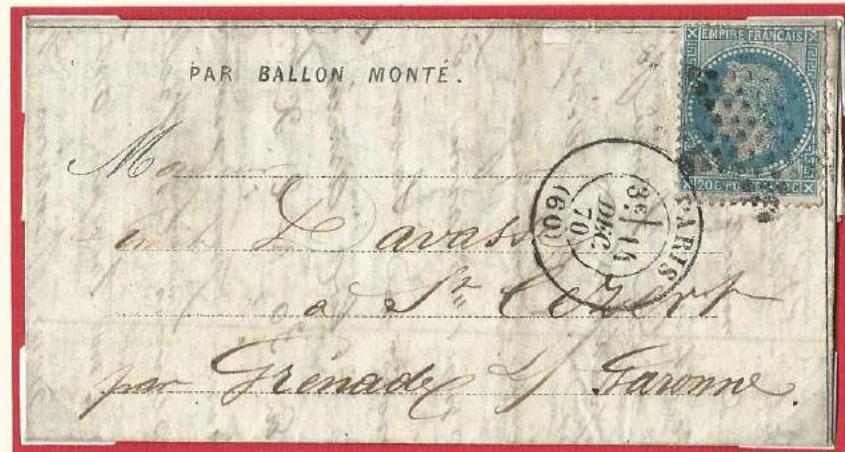 PAR BALLON MONTÉ.
EMPIRE FRANÇAIS
20 C
C
PARIS
3E
14
DEC
70
(60)
M
Davasse
à St Cezert
par Grenade s/ Garonne.